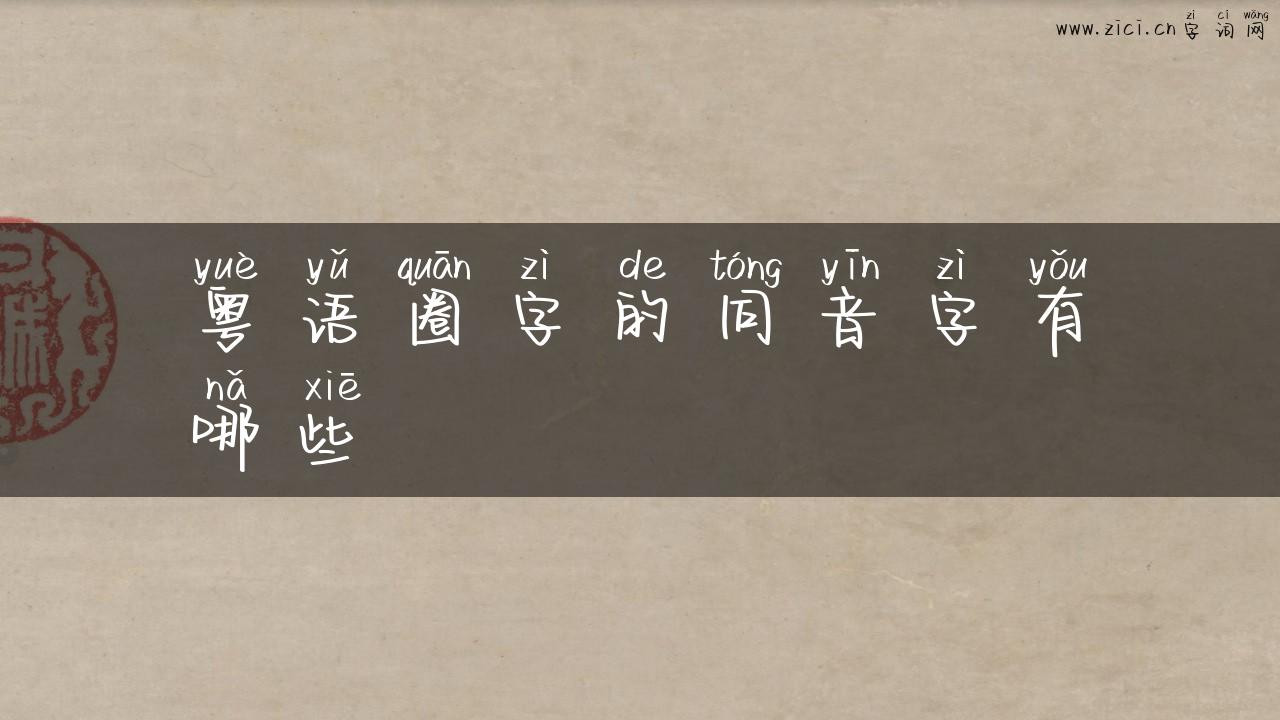 www.zici.cn字词网
zì cí wǎng
yuè yǔ quān zì de tóng yīn zì yǒu
粤语圈字的同音字有
nǎ xiē
哪些